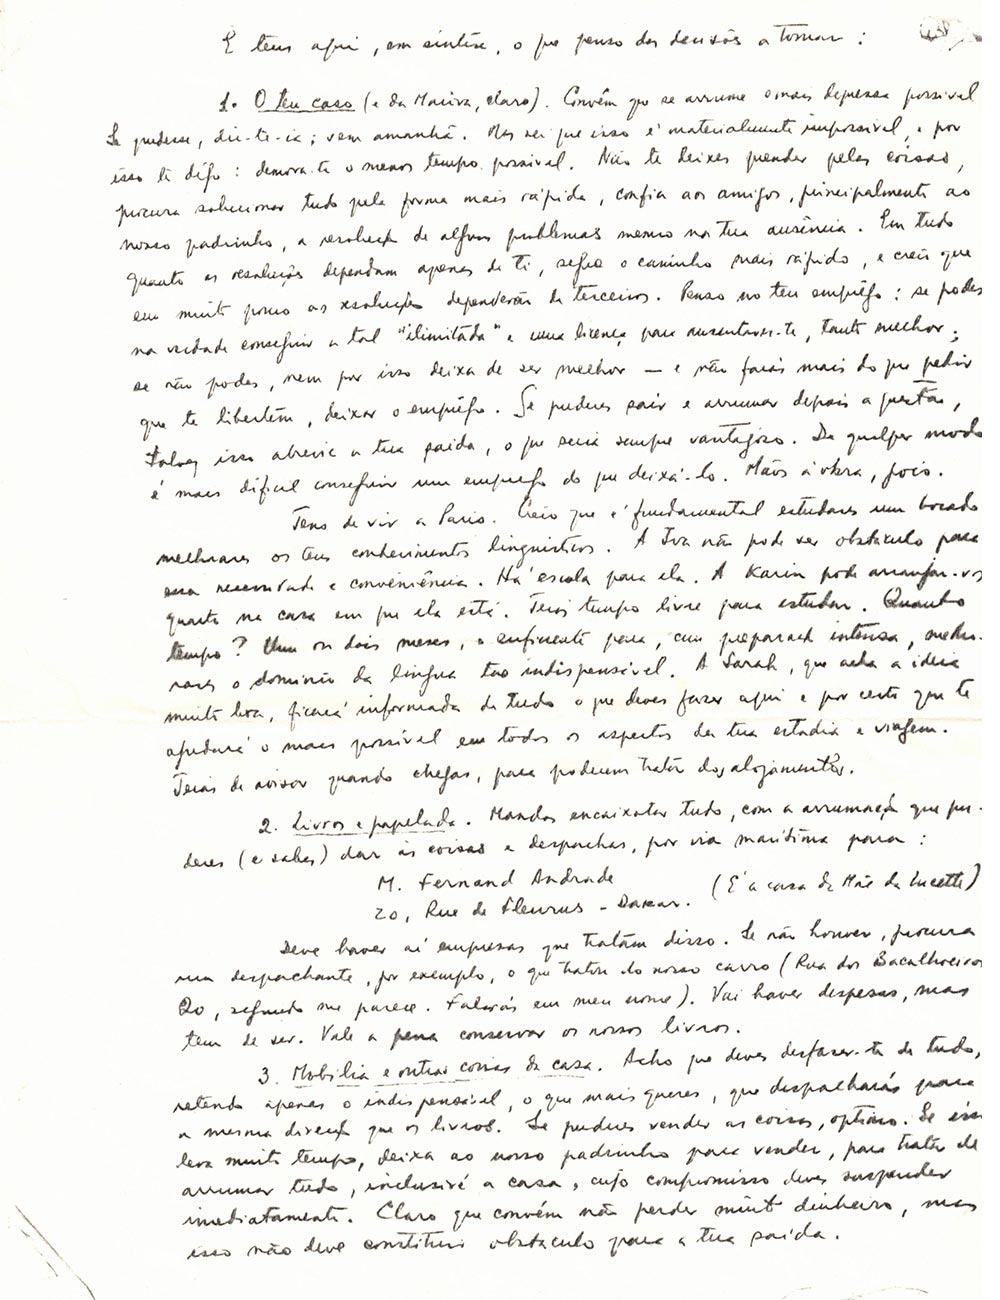 E tens aqui, em síntese, o que penso das decisões a tomar:
1. O teu caso (e da Mariva, claro). Convém que se arrume o mais depressa possível
Se pudesse, dir-te-ia; vem amanhã. Mas sei que isso é materialmente impossível, e por
isso te digo: demora-te o menos tempo possível. Não te deixes prender pelas coisas,
procura solucionar tudo pela forma mais rápida, confia aos amigos, principalmente ao
nosso padrinho, a resolução de alguns problemas mesmo na tua ausência. Em tudo
quanto as resoluções dependam apenas de ti, segue o caminho mais rápido, e creio que
em muito pouco as resoluções dependerão de terceiros. Penso no teu emprêgo: se podes
na verdade conseguir a tal "ilimitada" e uma licença para ausentares-te, tanto melhor;
se não podes, nem por isso deixa de ser melhor — e não farás mais do que pedir
que te libertem, deixar o emprêgo. Se puderes sair e arrumar depois a questão,
talvez isso abrevie a tua saída, o que seria sempre vantajoso. De qualquer modo
é mais difícil conseguir um emprego do que deixá-lo. Mãos à obra, pois.
Tens de vir a Paris. Creio que é fundamental estudares um bocado
melhorares os teus conhecimentos linguísticos. A Iva não pode ser obstáculo para
essa necessidade e conveniência. Há escola para ela. A Karin pode arranjar-vos
quarto na casa em que ela está. Terás tempo livre para estudar. Quanto
tempo? Um ou dois meses, o suficiente para, com preparação intensa,
o domínio da língua tão indispensável. A Sarah, que acha a ideia
muito boa, ficará informada de tudo o que deves fazer aqui e por certo que te
ajudará o mais possível em todos os aspectos da tua estadia e viagem.
Terás de avisar quando chegas, para poderem tratar dos alojamentos.
2. Livros e papelada. Mandas encaixotar tudo, com a arrumação que pu-
deres (e sabes) dar às coisas e despachas, por via marítima para:
M. Fernand Andrade
20, Rue de Fleurus - Dakar. (É a casa da Mãe da Lucette)
Deve haver aí empresas que tratam disso. Se não houver, procura
um despachante, por exemplo, o que tratou do nosso carro (Rua dos Bacalhoeiros
20, segundo me parece. Falarás em meu nome). Vai haver despesas, mas
tem de ser. Vale a pena conservar os nossos livros.
3. Mobília e outras coisas de casa. Acho que deves desfazer-te de tudo,
retendo apenas o indispensável, o que mais queres, que despacharás para
a mesma direcção que os livros. Se puderes vender as coisas, óptimo. Se isso
leva muito tempo, deixa ao nosso padrinho para vender, para tratar de
arrumar tudo, inclusivé a casa, cujo compromisso deves suspender
imediatamente. Claro que convém não perder muito dinheiro, mas
isso não deve constituir obstáculo para a tua saída.